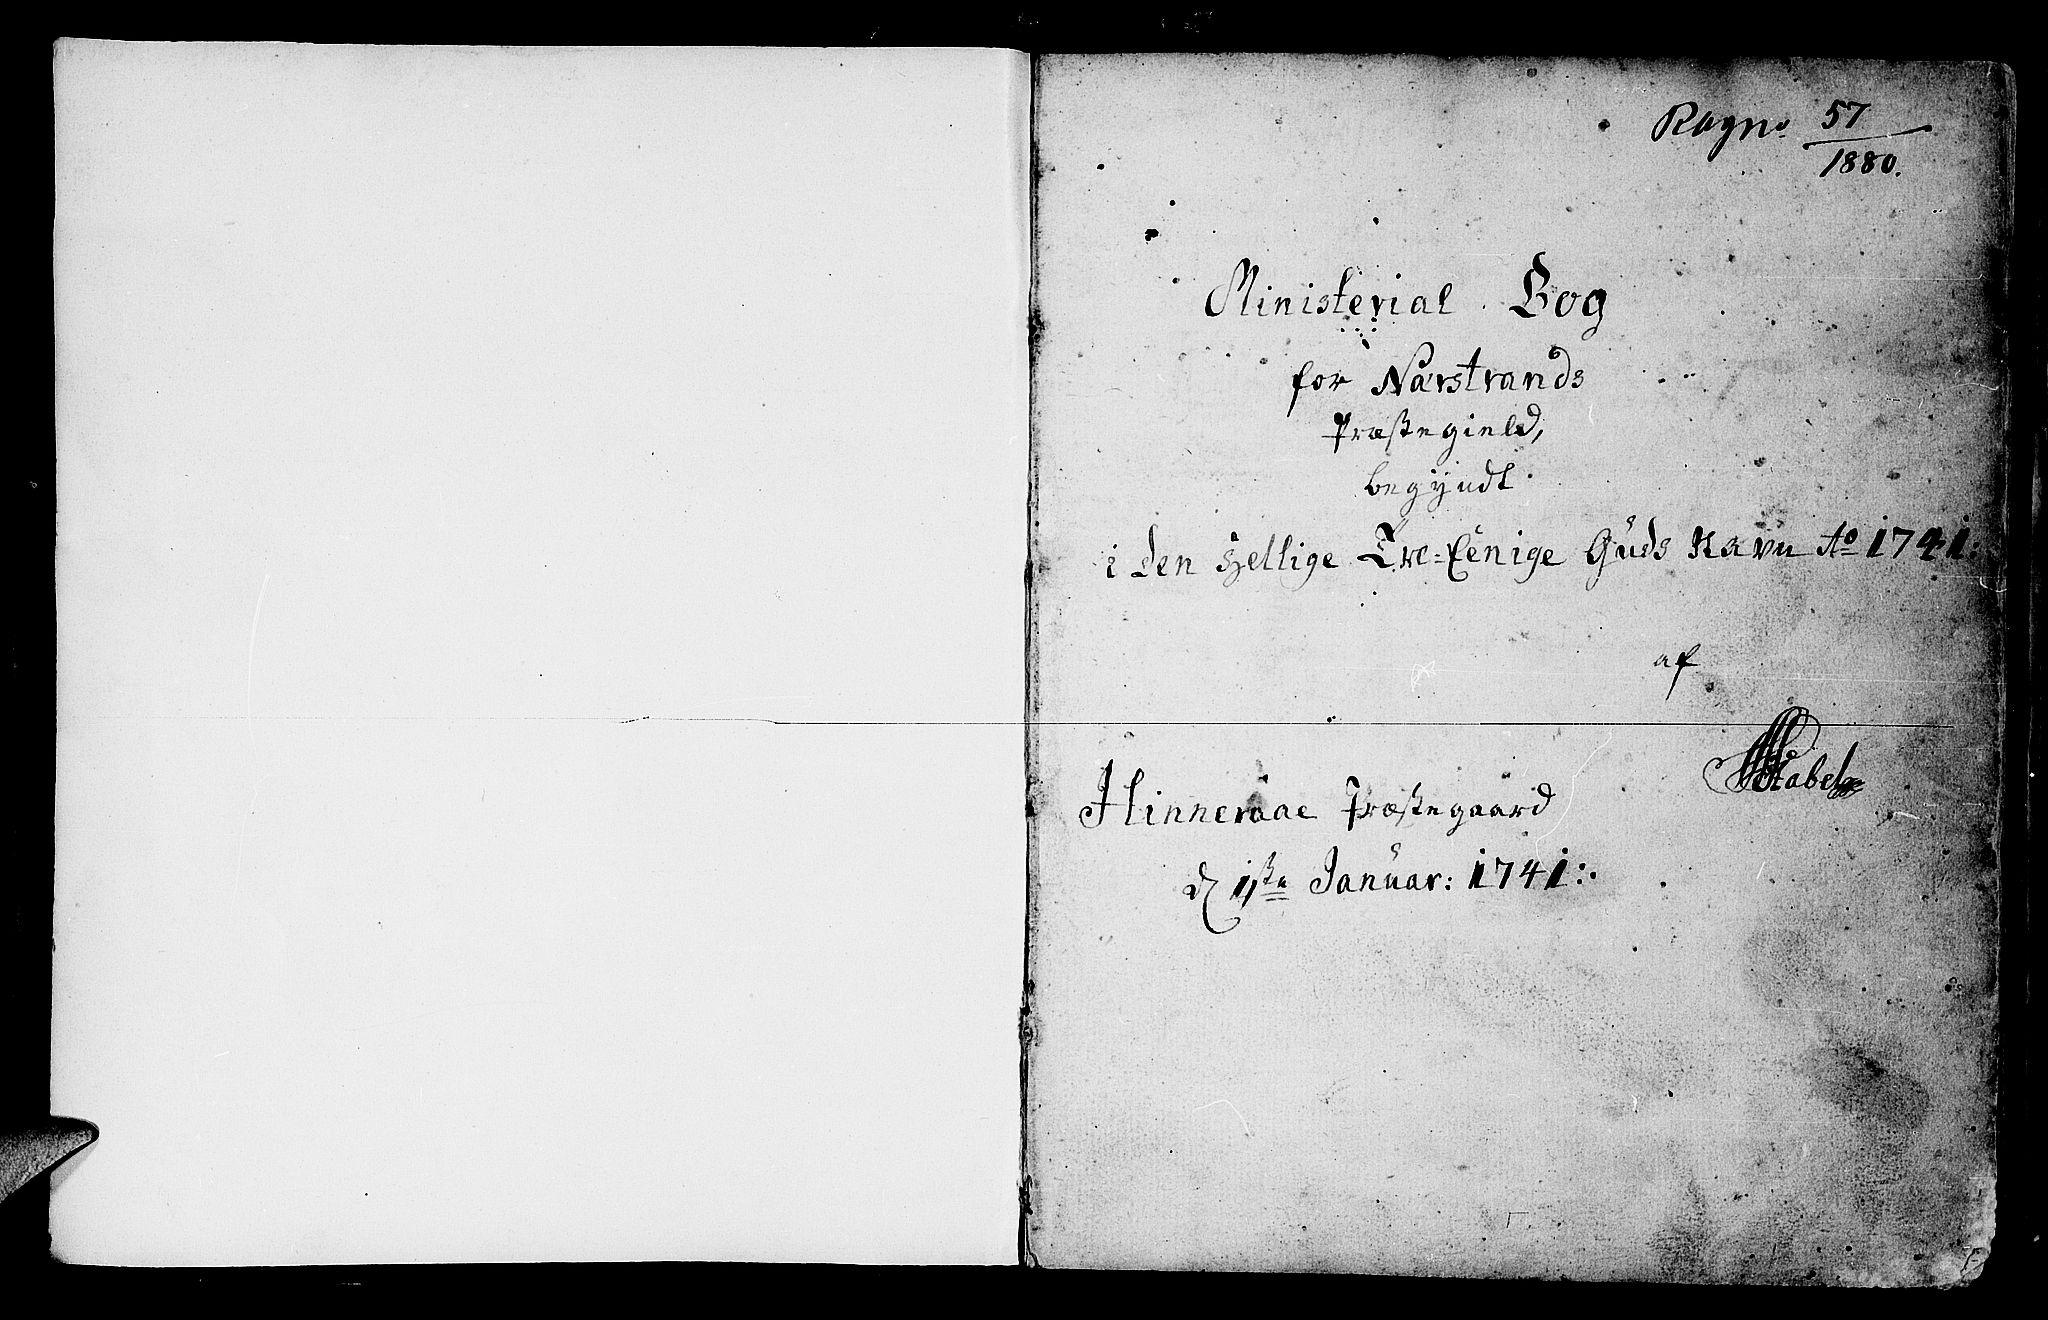 Ragno 57/1880.
Ministerial Bog
for Nærstrands
Præstegield,
begyndt
i den Hellige Tre-Eenige Guds Navn Ao 1741:
af
Stabel
Hinneraae Præstegaard
d 1ste Januar: 1741:.